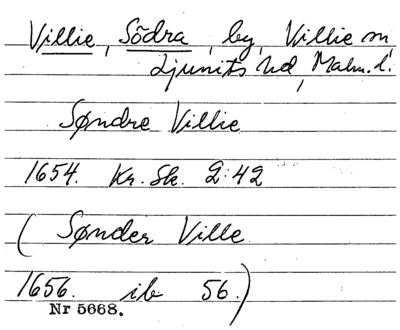 Villie, Södra, by, Villie sn
Ljunits hd, Malm. l.
Søndre Villie
1654. Kr. Sk. 2:42
(Sønder Ville
1656. ib 56.)
Nr 5668.